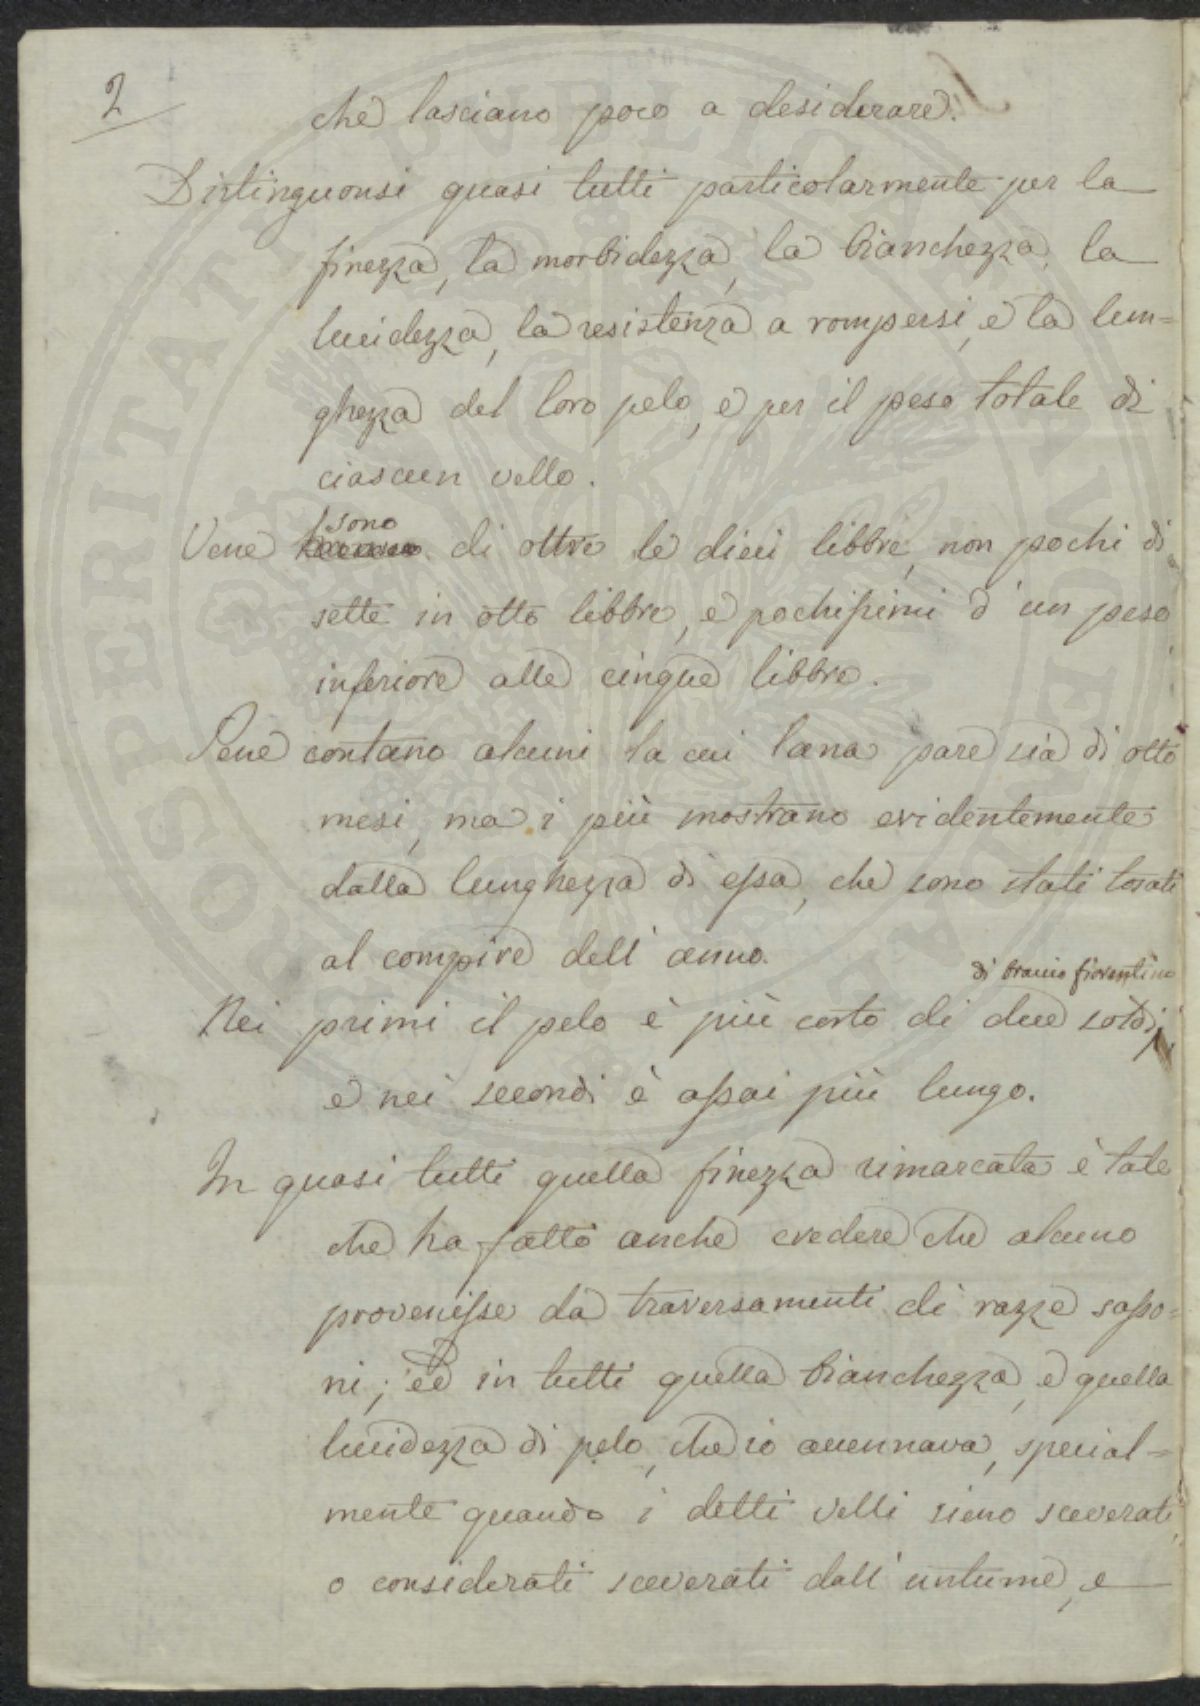 2
che lasciano poco a desiderare.
Distinguonsi quasi tutti particolarmente per la
finezza, la morbidezza, la bianchezza, la
lucidezza, la resistenza a rompersi, e la lun=
ghezza del loro pelo, e per il peso totale di
ciascun vello.
sono
Vene di oltre le dieci libbre, non pochi di
sette in otto libbre, e pochissimi d'un peso
inferiore alle cinque libbre.
Sene contano alcuni la cui lana pare sia di otto
mesi, ma i più mostrano evidentemente
dalla lunghezza di essa, che sono stati tosati
al compire dell'anno.
di braccio fiorentino
Nei primi il pelo è più corto di due soldi,
e nei secondi è assai più lungo.
In quasi tutti quella finezza rimarcata è tale
che ha fatto anche credere che alcuno
provenisse da traversamenti di razze sasso=
ni; ed in tutti quella bianchezza, e quella
lucidezza di pelo, che io accennava, special=
mente quando i detti velli sieno sceverati,
o considerati sceverati dall'untume, e
PROSPERITATI PUBLICAE AUGENDAE